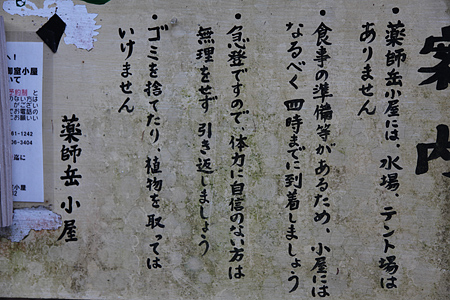 案内
・薬師岳小屋には、水場、テント場は
ありません
・食事の準備等があるため、小屋には
なるべく四時までに到着しましょう
・急登ですので、体力に自信のない方は
無理をせず引き返しましょう
・ゴミを捨てたり、植物を取っては
いけません
薬師岳小屋